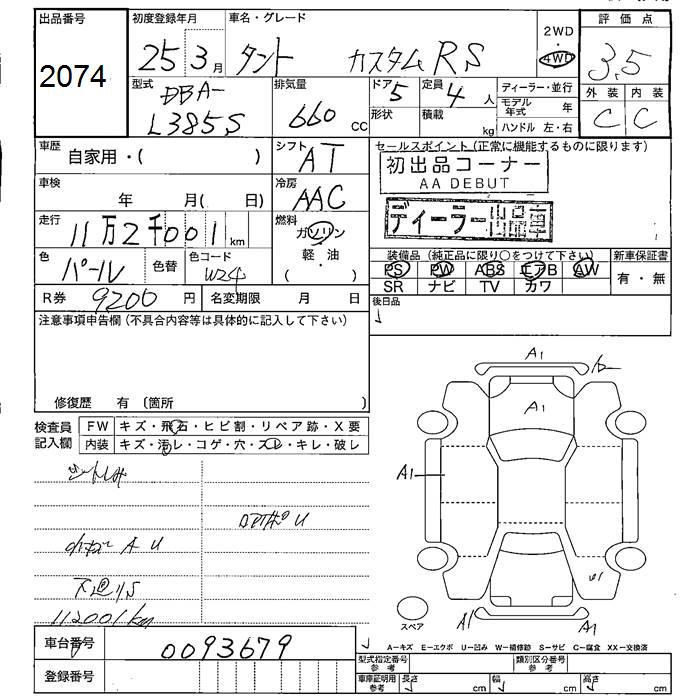 出品番号 初度登録年月 車名・グレード 2WD ・ 4WD 評価点
2074 25 3月 タント カスタム RS 3.5
型式 排気量 ドア 定員 ディーラー・並行 外装 内装
DBA- 5 4人 モデル年式 年 C C
L385S 660 CC 形状 積載 kg ハンドル 左・右
車歴 シフト セールスポイント (正常に機能するものに限ります)
自家用・( ) AT 初出品コーナー
車検 冷房 AA DEBUT
年 月( 日) AAC ディーラー出品車
走行 燃料
11万2千001km ガソリン
色 色替 色コード 軽・油 装備品 (純正品に限り○をつけて下さい) 新車保証書
パール W24 ( ) PS PW ABS エアB AW 有・無
SR ナビ TV カワ
R券 9200円 名変期限 月 日 後日品
注意事項申告欄 (不具合内容等は具体的に記入して下さい)
修復歴 有 (箇所 )
検査員 FW キズ・飛石・ヒビ割・リペア跡・X要
記入欄 内装 キズ・汚レ・コゲ・穴・スレ・キレ・破レ
A U
112001km
A1
A1
A1
A1
A1
スペア
A-キズ E-エクボ U-凹み W-補修跡 S-サビ C-腐食 XX-交換済
車台番号 0093679
登録番号
型式指定番号 参考 類別区分番号 参考
車庫証明用 参考 長さ cm 幅 cm 高さ cm